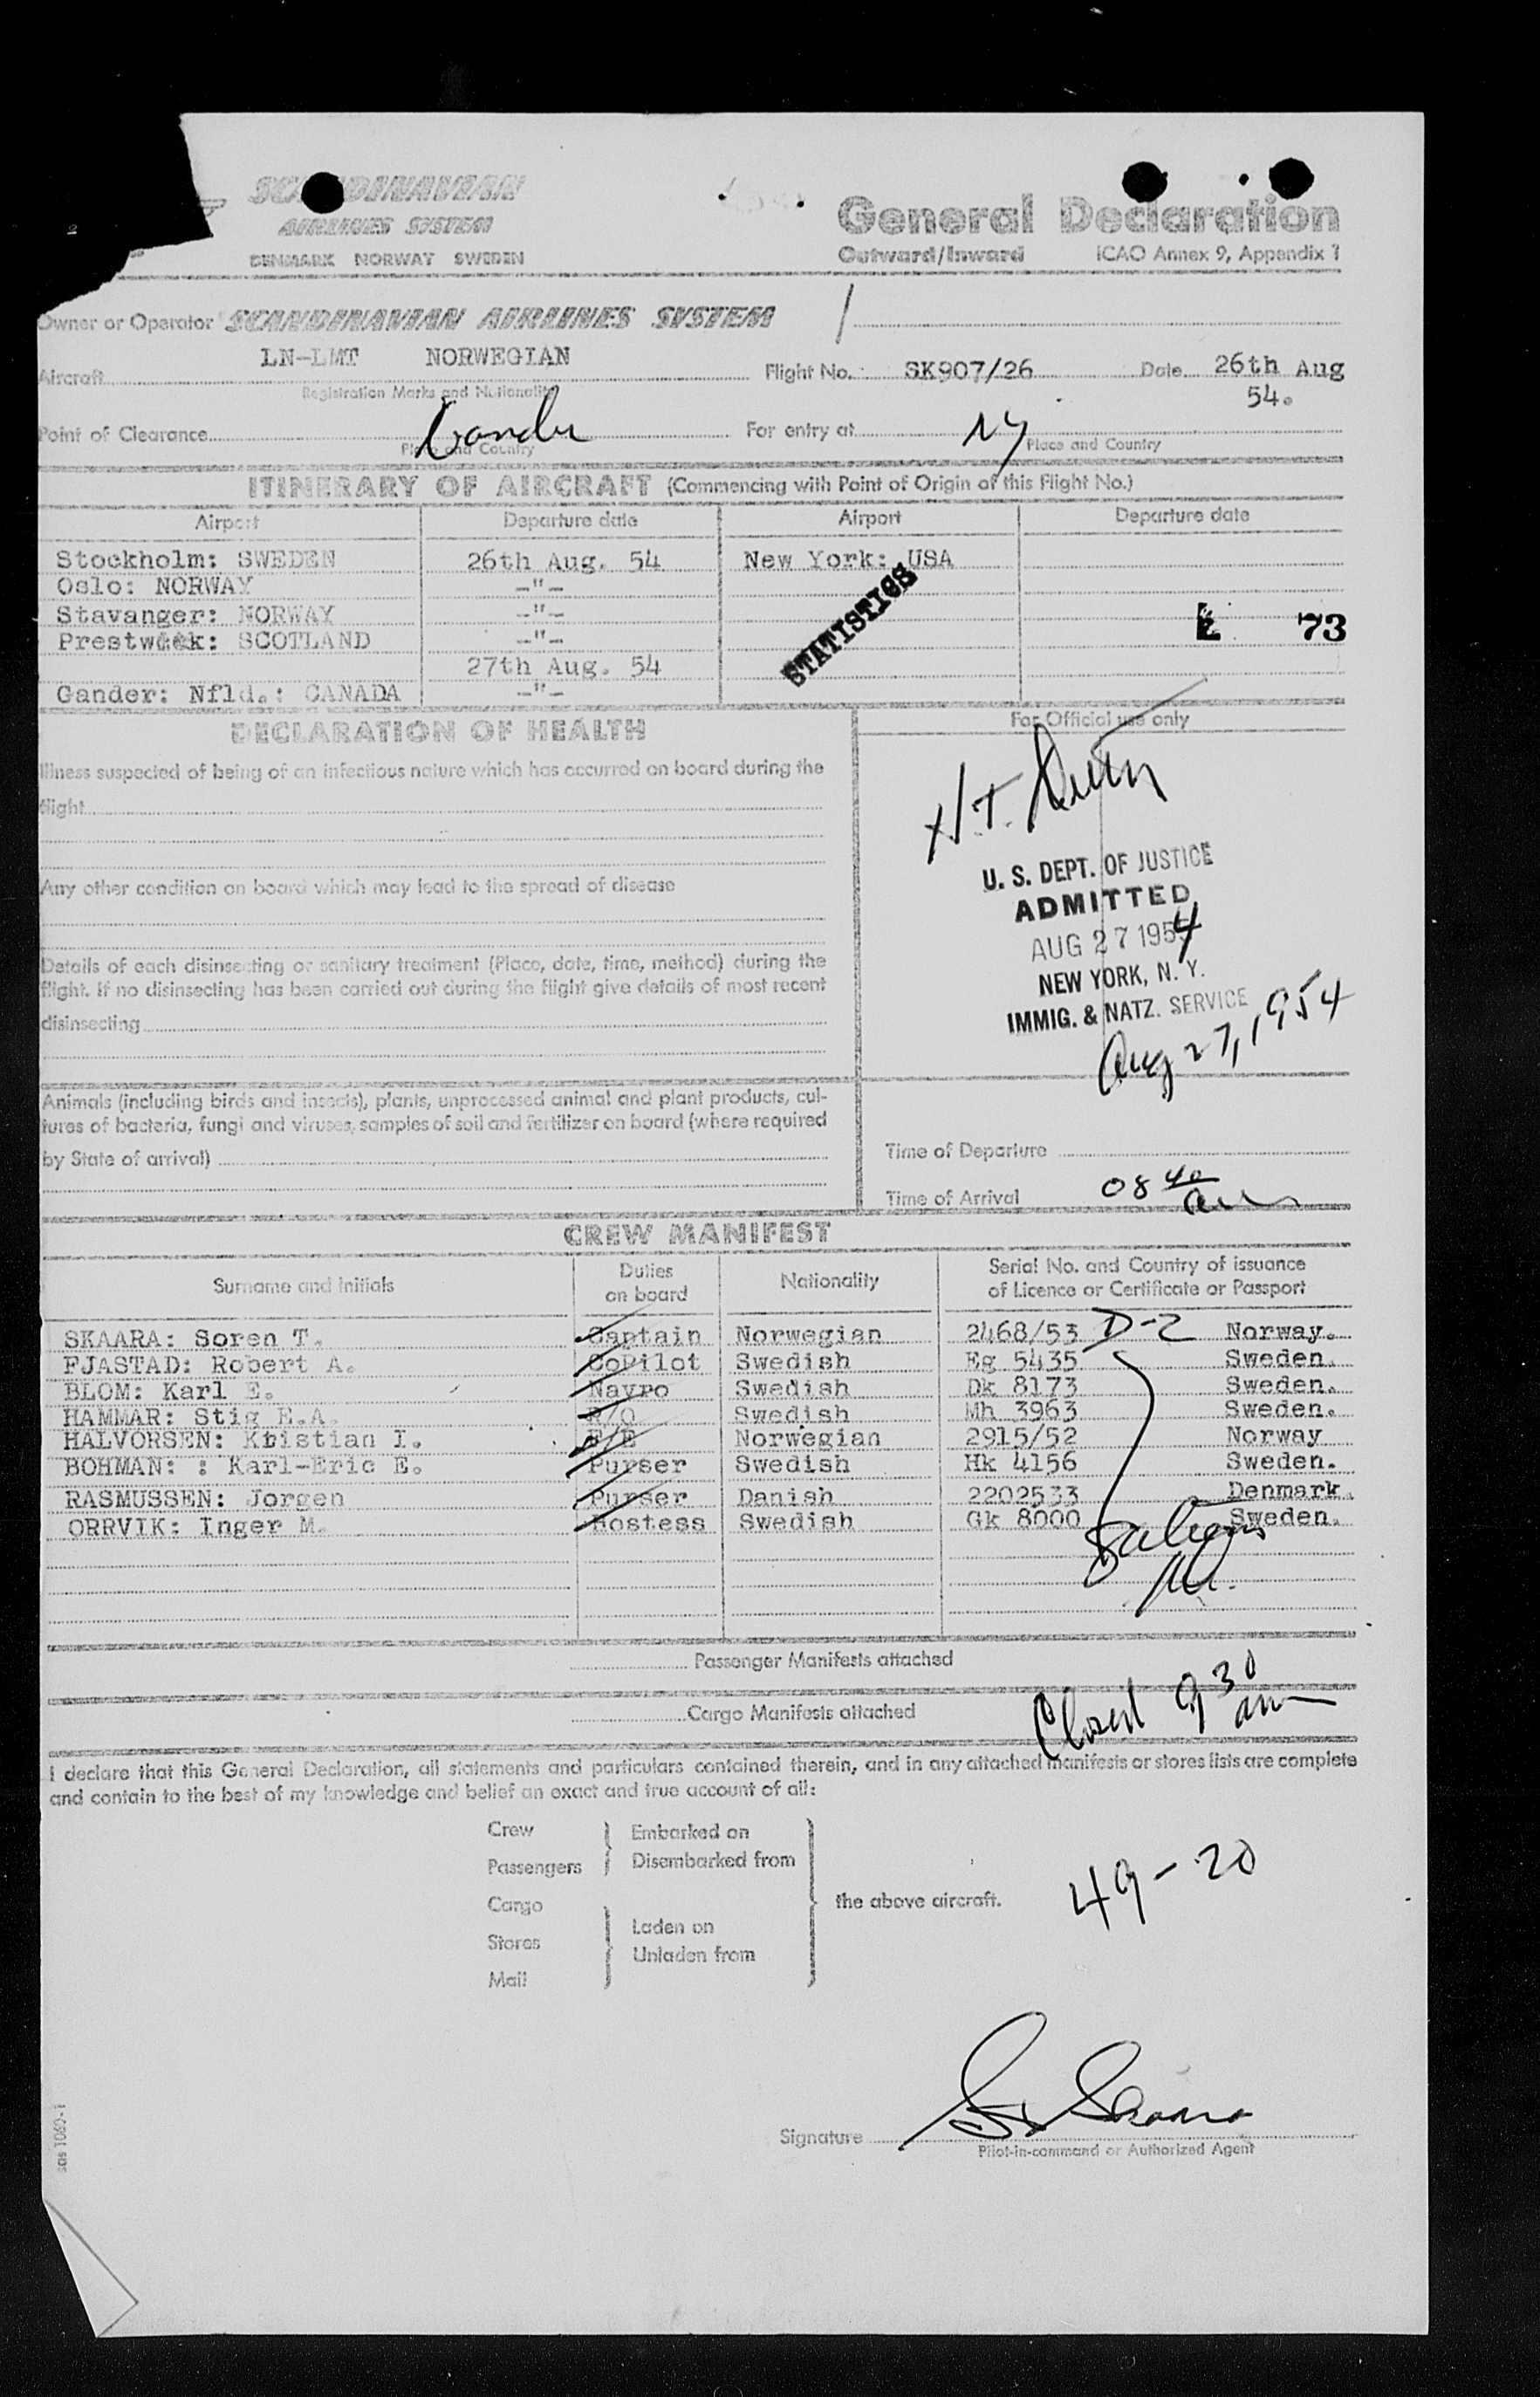 SCANDINAVIAN
AIRLINES SYSTEM
DENMARK NORWAY SWEDEN
General Declaration
Outward/Inward ICAO Annex 9, Appendix 1
Owner or Operator SCANDINAVIAN AIRLINES SYSTEM
Aircraft LN-LMT NORWEGIAN Flight No. SK907/26 Date 26th Aug
54.
Registration Marks and Nationality
Point of Clearance Gander For entry at NY
Place and Country Place and Country
ITINERARY OF AIRCRAFT (Commencing with Point of Origin of this Flight No.)
Airport Departure date Airport Departure date
Stockholm: SWEDEN 26th Aug. 54 New York: USA
Oslo: NORWAY -"-
Stavanger: NORWAY -"-
Prestweek: SCOTLAND -"-
27th Aug. 54
Gander: Nfld.: CANADA -"-
STATISTICS
73
DECLARATION OF HEALTH
For Official use only
Illness suspected of being of an infectious nature which has occurred on board during the
flight
Any other condition on board which may lead to the spread of disease
Details of each disinsecting or sanitary treatment (Place, date, time, method) during the
flight. If no disinsecting has been carried out during the flight give details of most recent
disinsecting
Animals (including birds and insects), plants, unprocessed animal and plant products, cul-
tures of bacteria, fungi and viruses, samples of soil and fertilizer on board (where required
by State of arrival)
H.T.
U. S. DEPT. OF JUSTICE
ADMITTED
AUG 27 1954
NEW YORK, N. Y.
IMMIG. & NATZ. SERVICE
Aug 27, 1954
Time of Departure
Time of Arrival 08 40 am
CREW MANIFEST
Surname and Initials Duties on board Nationality Serial No. and Country of issuance of Licence or Certificate or Passport
SKAARA: Soren T. Captain Norwegian 2468/53 D-2 Norway.
FJASTAD: Robert A. CoPilot Swedish Eg 5435 Sweden.
BLOM: Karl E. Navro Swedish Dk 8173 Sweden.
HAMMAR: Stig E.A. R/O Swedish Mh 3963 Sweden.
HALVORSEN: Kristian I. F/E Norwegian 2915/52 Norway
BOHMAN: : Karl-Eric E. Purser Swedish Hk 4156 Sweden.
RASMUSSEN: Jorgen Purser Danish 2202533 Denmark.
ORRVIK: Inger M. Hostess Swedish Gk 8000 Sweden.
Passenger Manifests attached
Cargo Manifests attached
Closed 9 30 am
I declare that this General Declaration, all statements and particulars contained therein, and in any attached manifests or stores lists are complete
and contain to the best of my knowledge and belief an exact and true account of all:
Crew
Passengers
Cargo
Stores
Mail
Embarked on
Disembarked from
Laden on
Unladen from
the above aircraft.
49-20
Signature
Pilot-in-command or Authorized Agent
sas 1060-1